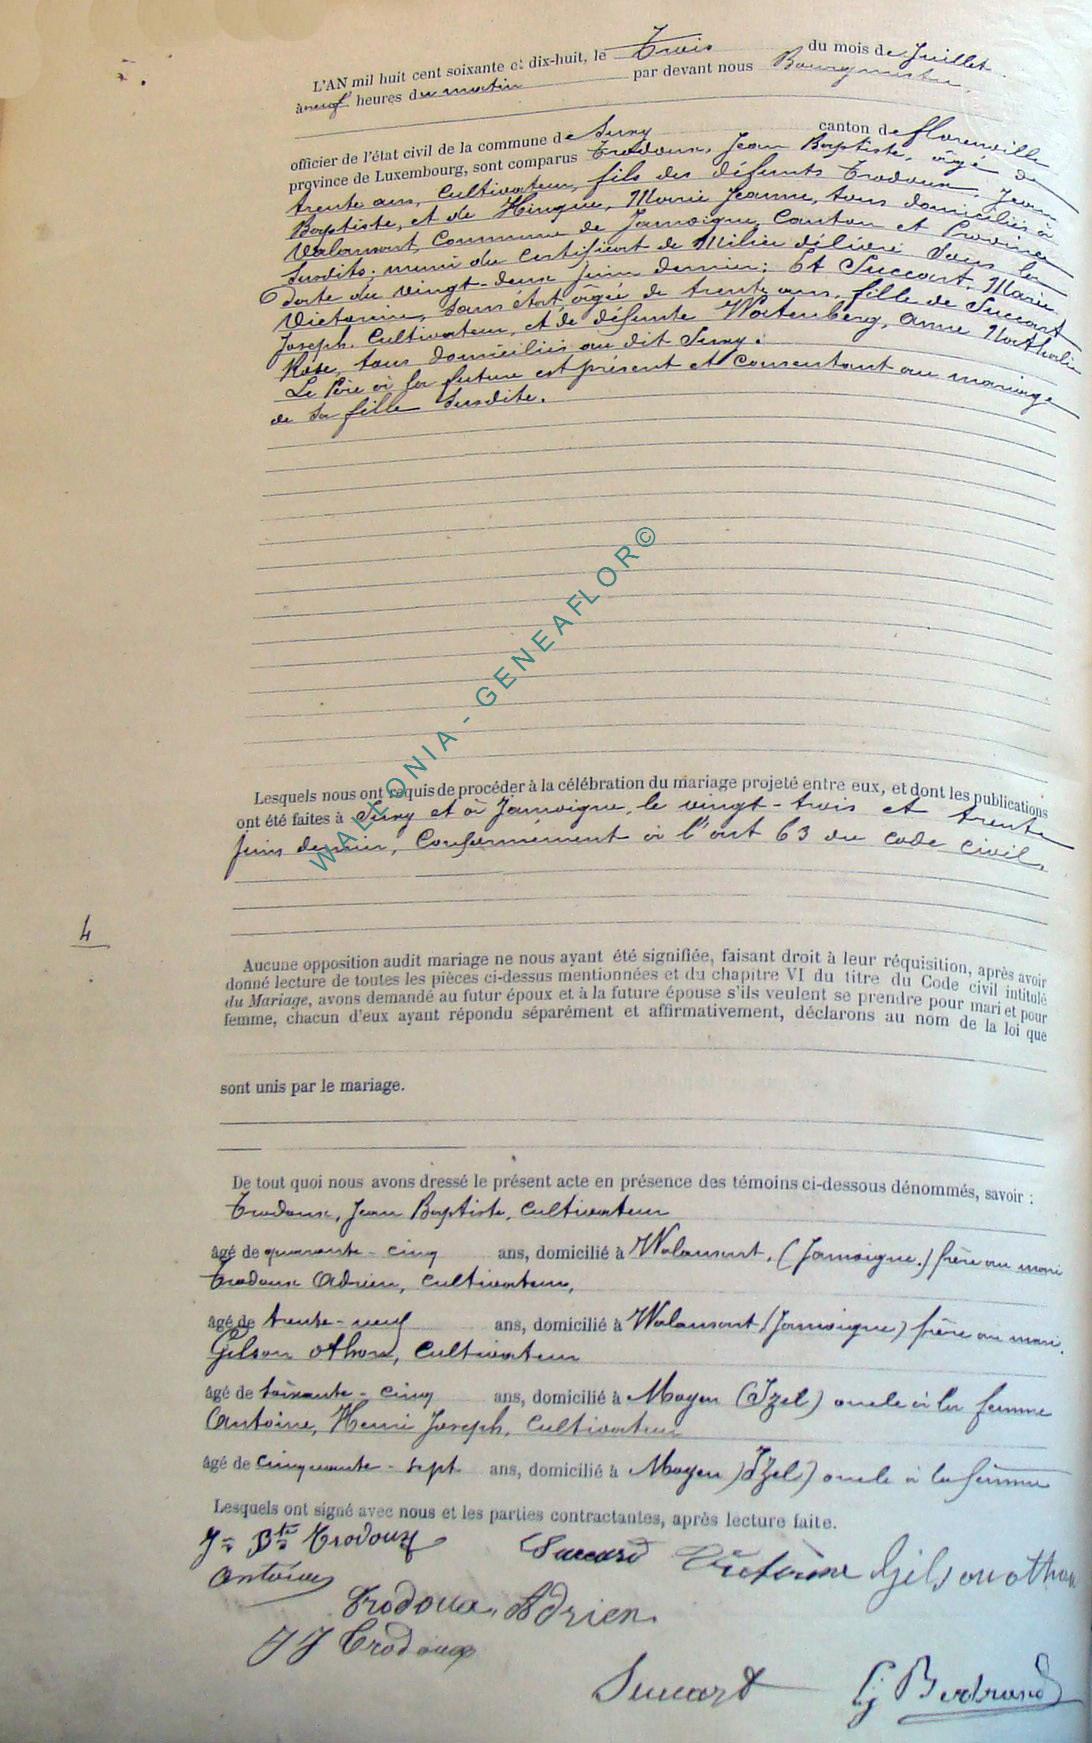 L'AN mil huit cent soixante et dix-huit, le Trois du mois de Juillet
à neuf heures du matin par devant nous Bourgmestre,
officier de l'état civil de la commune de Suxy canton de florenville
province de Luxembourg, sont comparus Trodoux, Jean Baptiste, âgé de
trente ans, Cultivateur, fils des défunts Trodoux, Jean
Baptiste, et de Hinque, Marie Jeanne, tous domiciliés à
Valansart, Commune de Jamoigne, Canton et Province
susdits; muni du Certificat de Milice délivré sous la
date du vingt-deux juin dernier; Et Succart, Marie
Victorine, sans état, âgée de trente ans, fille de Succart
Joseph, Cultivateur, et de défunte Watenberg, Anne Nathalie
Rose, tous domiciliés au dit Suxy.
Le Père à la future est présent et consentant au mariage
de sa fille susdite.
WALLONIA - GENEAFLOR©
Lesquels nous ont requis de procéder à la célébration du mariage projeté entre eux, et dont les publications
ont été faites à Suxy et à Jamoigne, le vingt-trois et trente
juin dernier, Conformément à l'art 63 du code civil.
4
Aucune opposition audit mariage ne nous ayant été signifiée, faisant droit à leur réquisition, après avoir
donné lecture de toutes les pièces ci-dessus mentionnées et du chapitre VI du titre du Code civil intitulé
du Mariage, avons demandé au futur époux et à la future épouse s'ils veulent se prendre pour mari et pour
femme, chacun d'eux ayant répondu séparément et affirmativement, déclarons au nom de la loi que
sont unis par le mariage.
De tout quoi nous avons dressé le présent acte en présence des témoins ci-dessous dénommés, savoir :
Trodoux, Jean Baptiste, Cultivateur
âgé de quarante-cinq ans, domicilié à Walansart, (Jamoigne.) frère au mari
Trodoux Adrien, Cultivateur,
âgé de trente-neuf ans, domicilié à Walansart (Jamoigne) frère au mari.
Gilson Othon, Cultivateur
âgé de soixante-cinq ans, domicilié à Moyen (Izel) oncle à la femme
Antoine, Henri Joseph, Cultivateur
âgé de cinquante-sept ans, domicilié à Moyen (Izel) oncle à la femme
Lesquels ont signé avec nous et les parties contractantes, après lecture faite.
Jn Bte Trodoux Succard Victorine Gilson othon
Antoine
Trodoux, Adrien.
JJ Trodoux
Succart G Bertrand